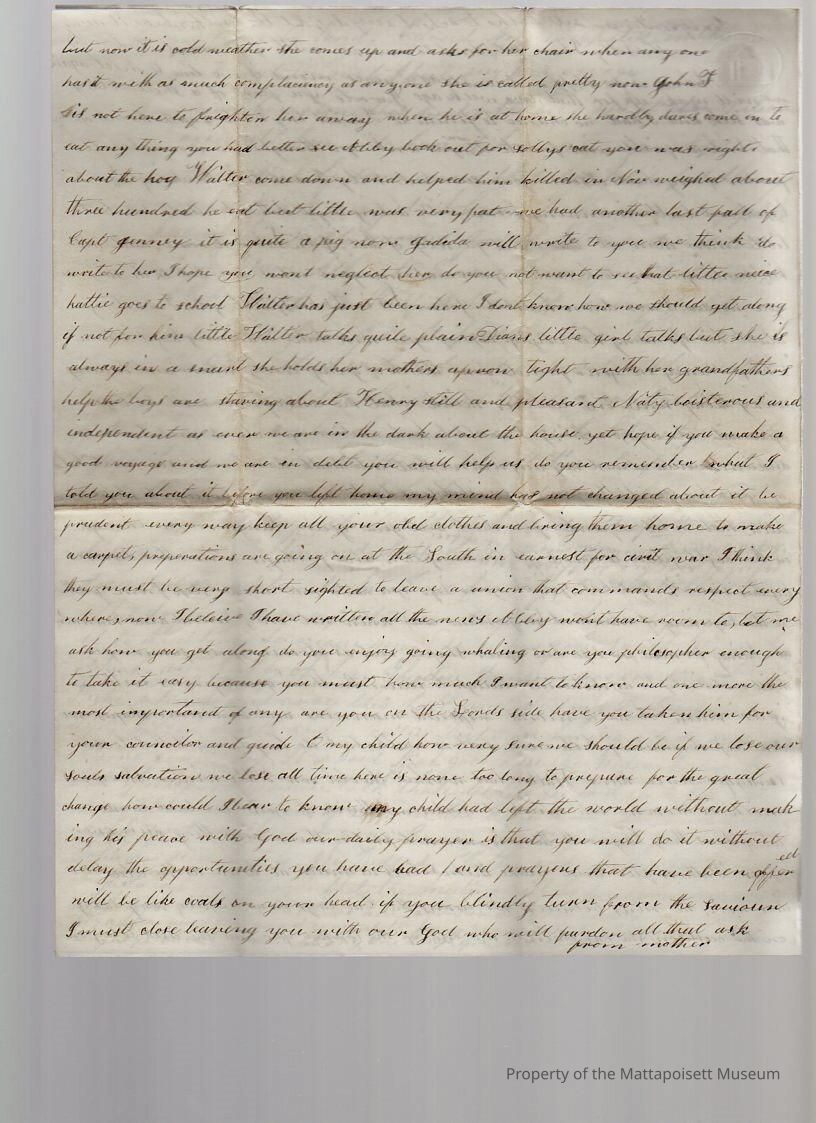 but now it is cold weather she comes up and asks for her chair when any one
has it with as much complacency as any one she is called pretty now John F
is not here to frighten her away when he is at home she hardly dares come in to
eat any thing you had better see Abby look out for sollys cat you was right
about the hog Walter come down and helped him killed in Nov weighed about
three hundred he eat but little was very fat we had another last fall of
Capt it is quite a pig now will write to you we think do
write to her I hope you wont neglect her do you not want to see that little neice
hattie goes to school Walter has just been here I dont know how we should get along
if not for him little Walter talks quite plain Dians little girl talks but she is
always in a snarl she holds her mothers apron tight with her grandfathers
help the boys are staving about Henry still and pleasant Naty boisterous and
independent as ever we are in the dark about the house yet hope if you make a
good voyage and we are in debt you will help us do you remember what I
told you about it before you left home my mind has not changed about it be
prudent every way keep all your old clothes and bring them home to make
a carpet, preperations are going on at the South in earnest for civil war I think
they must be very short sighted to leave a union that commands respect every
where, now I beleive I have written all the news Abby wont have room to, let me
ask how you get along do you enjoy going whaling or are you philosopher enough
to take it easy because you must how much I want to know and one more the
most important of any are you on the Lords side have you taken him for
your councilor and guide O my child how very sure we should be if we lose our
souls salvation we lose all time here is none too long to prepare for the great
change how could I bear to know my child had left the world without mak
ing his peace with God our daily prayer is that you will do it without
delay the opportunities you have had and prayers that have been offer
ed
will be like coals on your head if you blindly turn from the Saviour
I must close leaving you with our God who will pardon all that ask
from mother
Property of the Mattapoisett Museum